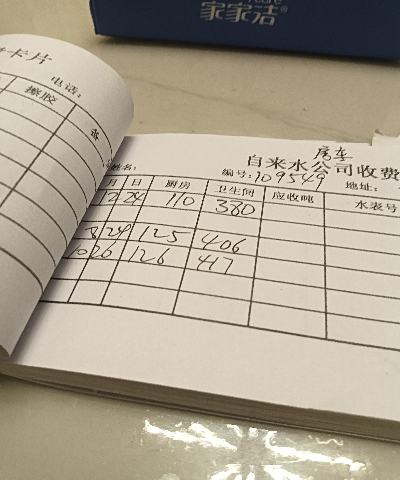 家家洁®
卡片
电话:
擦胶
自来水公司收费
姓名:
编号: 709549
地址:
月 日 厨房 卫生间 应收吨 水表号
12 24 110 380
8 29 125 406
10 26 126 417